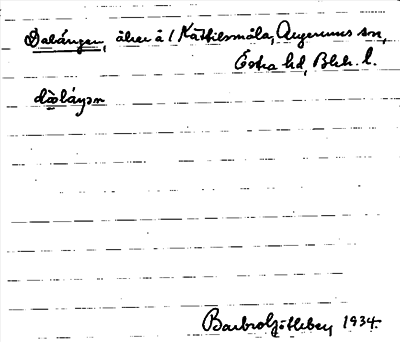 Dalången, åker å 1 Kättilsmåla, Augerums sn,
Östra hd, Blek. l.
dàláŋən
Barbro Götlebey 1934.